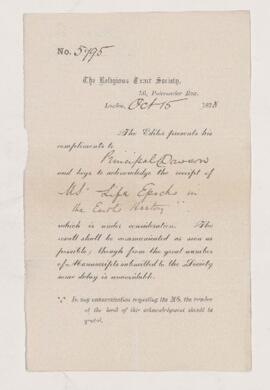 No. 5795
The Religious Tract Society,
56, Paternoster Row.
London, Oct 15 1878
The Editor presents his
compliments to
Principal Dawson
and begs to acknowledge the receipt of
MS "Life Epochs in
the Earth's History"
which is under consideration. The
result shall be communicated as soon as
possible; though from the great number
of Manuscripts submitted to the Society
some delay is unavoidable.
In any communication respecting the MS. the number
at the head of this acknowledgment should be
quoted.